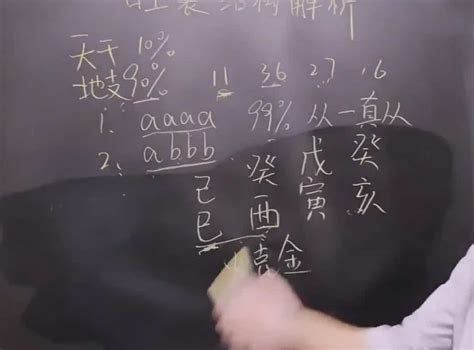 旺衰结构解析
天干 10%
地支 90% 11 36 27 16
1. aaaa 99% 从一真从
2. abbb
己 癸 戊 癸
巳 酉 寅 亥
克金